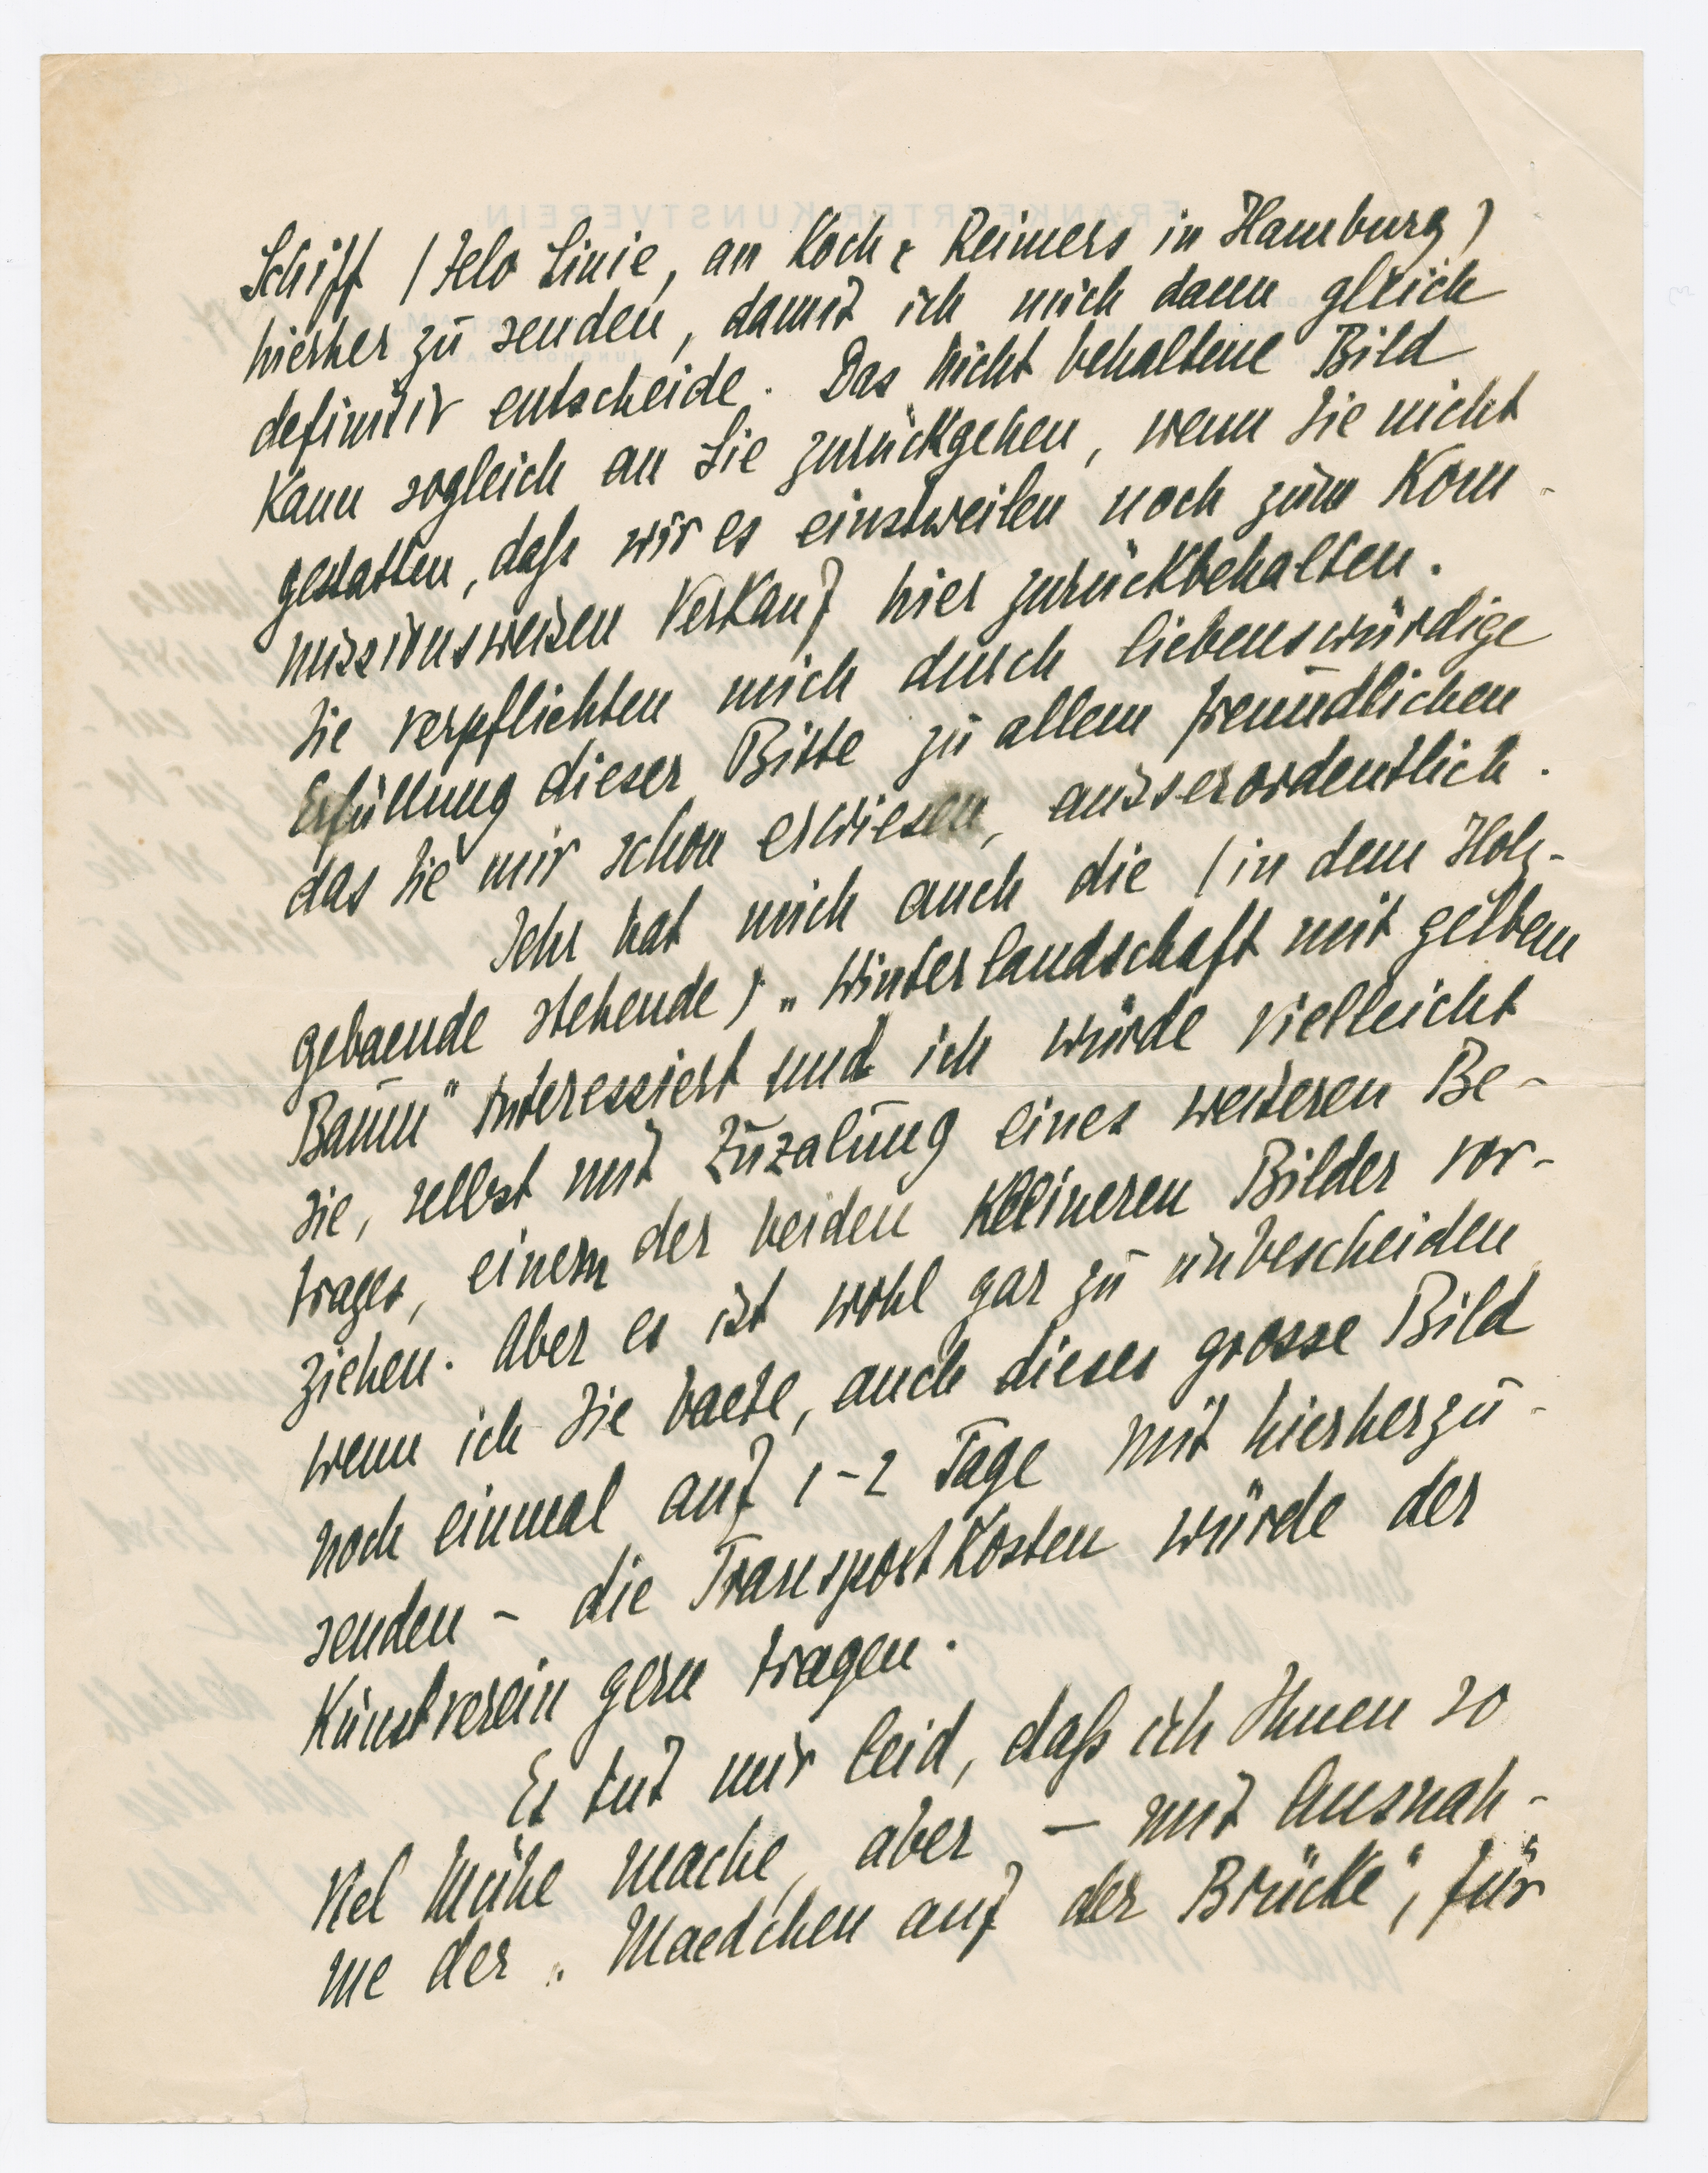 Schiff (Felo Linie, an Koch & Reimers in Hamburg)
hierher zu senden, damit ich mich dann gleich
definitiv entscheide. Das nicht behaltene Bild
kann sogleich an Sie zurückgehen, wenn Sie nicht
gestatten, daß wir es einstweilen noch zum Kom-
missionsweisen Verkauf hier zurückbehalten.
Sie verpflichten mich durch liebenswürdige
Erfüllung dieser Bitte zu allem freundlichen
das Sie mir schon erwiesen, ausserordentlich.
Sehr hat mich auch die (in dem Holz-
gebaeude stehende) „Winterlandschaft mit gelbem
Baum" interessiert und ich würde vielleicht
sie, selbst mit Zuzalung eines weiteren Be-
trages, einem der beiden kleineren Bilder vor-
ziehen. Aber es ist wohl gar zu unbescheiden
wenn ich Sie baete, auch dieses grosse Bild
noch einmal auf 1-2 Tage mit hierherzu-
senden – die Transportkosten würde der
Kunstverein gern tragen.
Es tut mir leid, daß ich Ihnen so
viel Mühe mache, aber – mit Ausnah-
me der „Maedchen auf der Brücke", für
FRANKFURTER KUNSTVEREIN